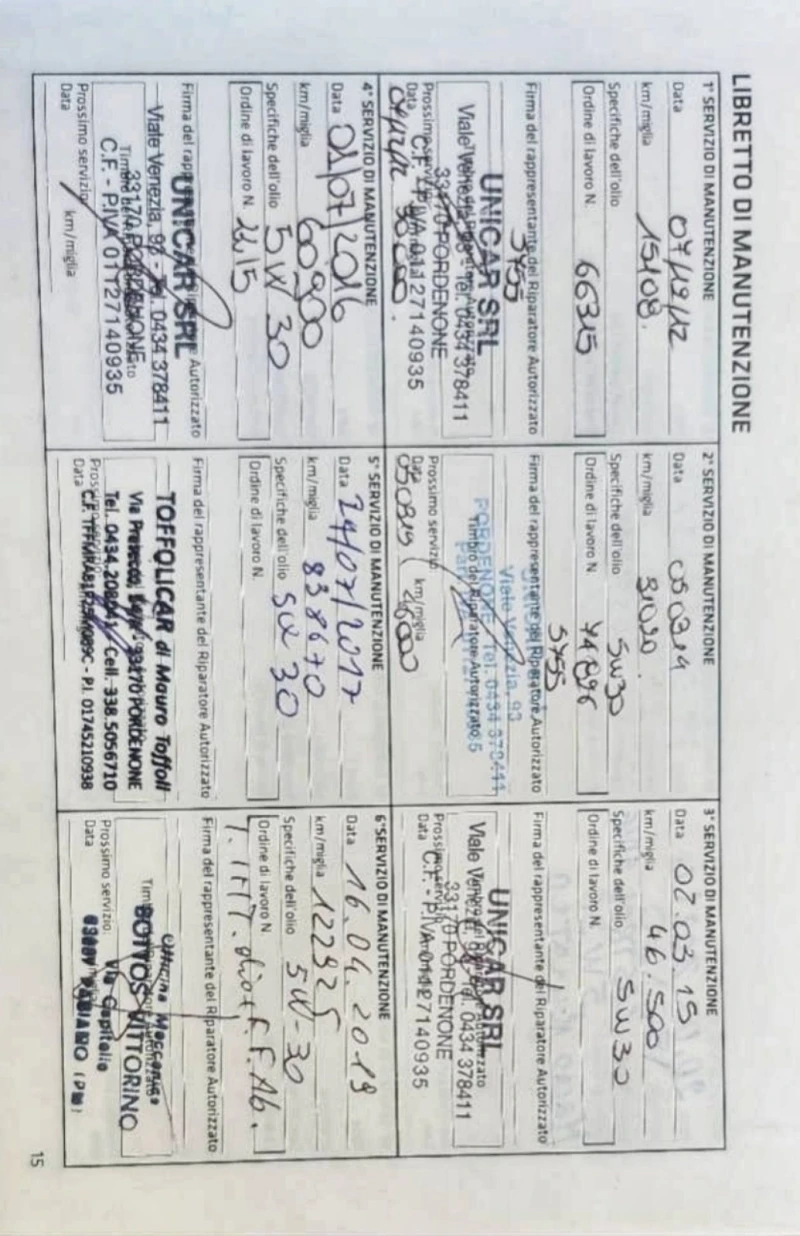 LIBRETTO DI MANUTENZIONE
1° SERVIZIO DI MANUTENZIONE
Data 07/12/12
km/miglia 15108.
Specifiche dell'olio
Ordine di lavoro N. 66315
3755
Firma del rappresentante del Riparatore Autorizzato
UNICAR SRL
Viale Venezia, 93 - Tel. 0434 378411
33170 PORDENONE
C.F. - P.IVA 01127140935
Prossimo servizio
Data
2° SERVIZIO DI MANUTENZIONE
Data 050314
km/miglia 31020.
Specifiche dell'olio 5W30
Ordine di lavoro N. 74896
3755
Firma del rappresentante del Riparatore Autorizzato
Viale Venezia, 93
PORDENONE Tel. 0434 378411
Timbro del Riparatore Autorizzato
Prossimo servizio
Data 050315 km/miglia 46000
3° SERVIZIO DI MANUTENZIONE
Data 02.03.15
km/miglia 46.500
Specifiche dell'olio 5W30
Ordine di lavoro N.
Firma del rappresentante del Riparatore Autorizzato
UNICAR SRL
Viale Venezia, 93 - Tel. 0434 378411
33170 PORDENONE
C.F. - P.IVA 01127140935
Prossimo servizio
Data
4° SERVIZIO DI MANUTENZIONE
Data 01/07/2016
km/miglia 60900
Specifiche dell'olio 5W30
Ordine di lavoro N.
Firma del Autorizzato
UNICAR SRL
Viale Venezia, 93 - Tel. 0434 378411
33170 PORDENONE
C.F. - P.IVA 01127140935
Prossimo servizio
Data km/miglia
5° SERVIZIO DI MANUTENZIONE
Data 24/07/2017
km/miglia 838670
Specifiche dell'olio 5W30
Ordine di lavoro N.
Firma del rappresentante del Riparatore Autorizzato
TOFFOLICAR di Mauro Toffoli
33170 PORDENONE
Cell. 338.5056710
P.I. 01745210938
Data
6° SERVIZIO DI MANUTENZIONE
Data 16.04.2019
km/miglia 122925
Specifiche dell'olio 5W-30
Ordine di lavoro N.
Firma del rappresentante del Riparatore Autorizzato
Officina Meccanica
BOTTOS VITTORINO
Via Capitello
Prossimo servizio:
Data
15